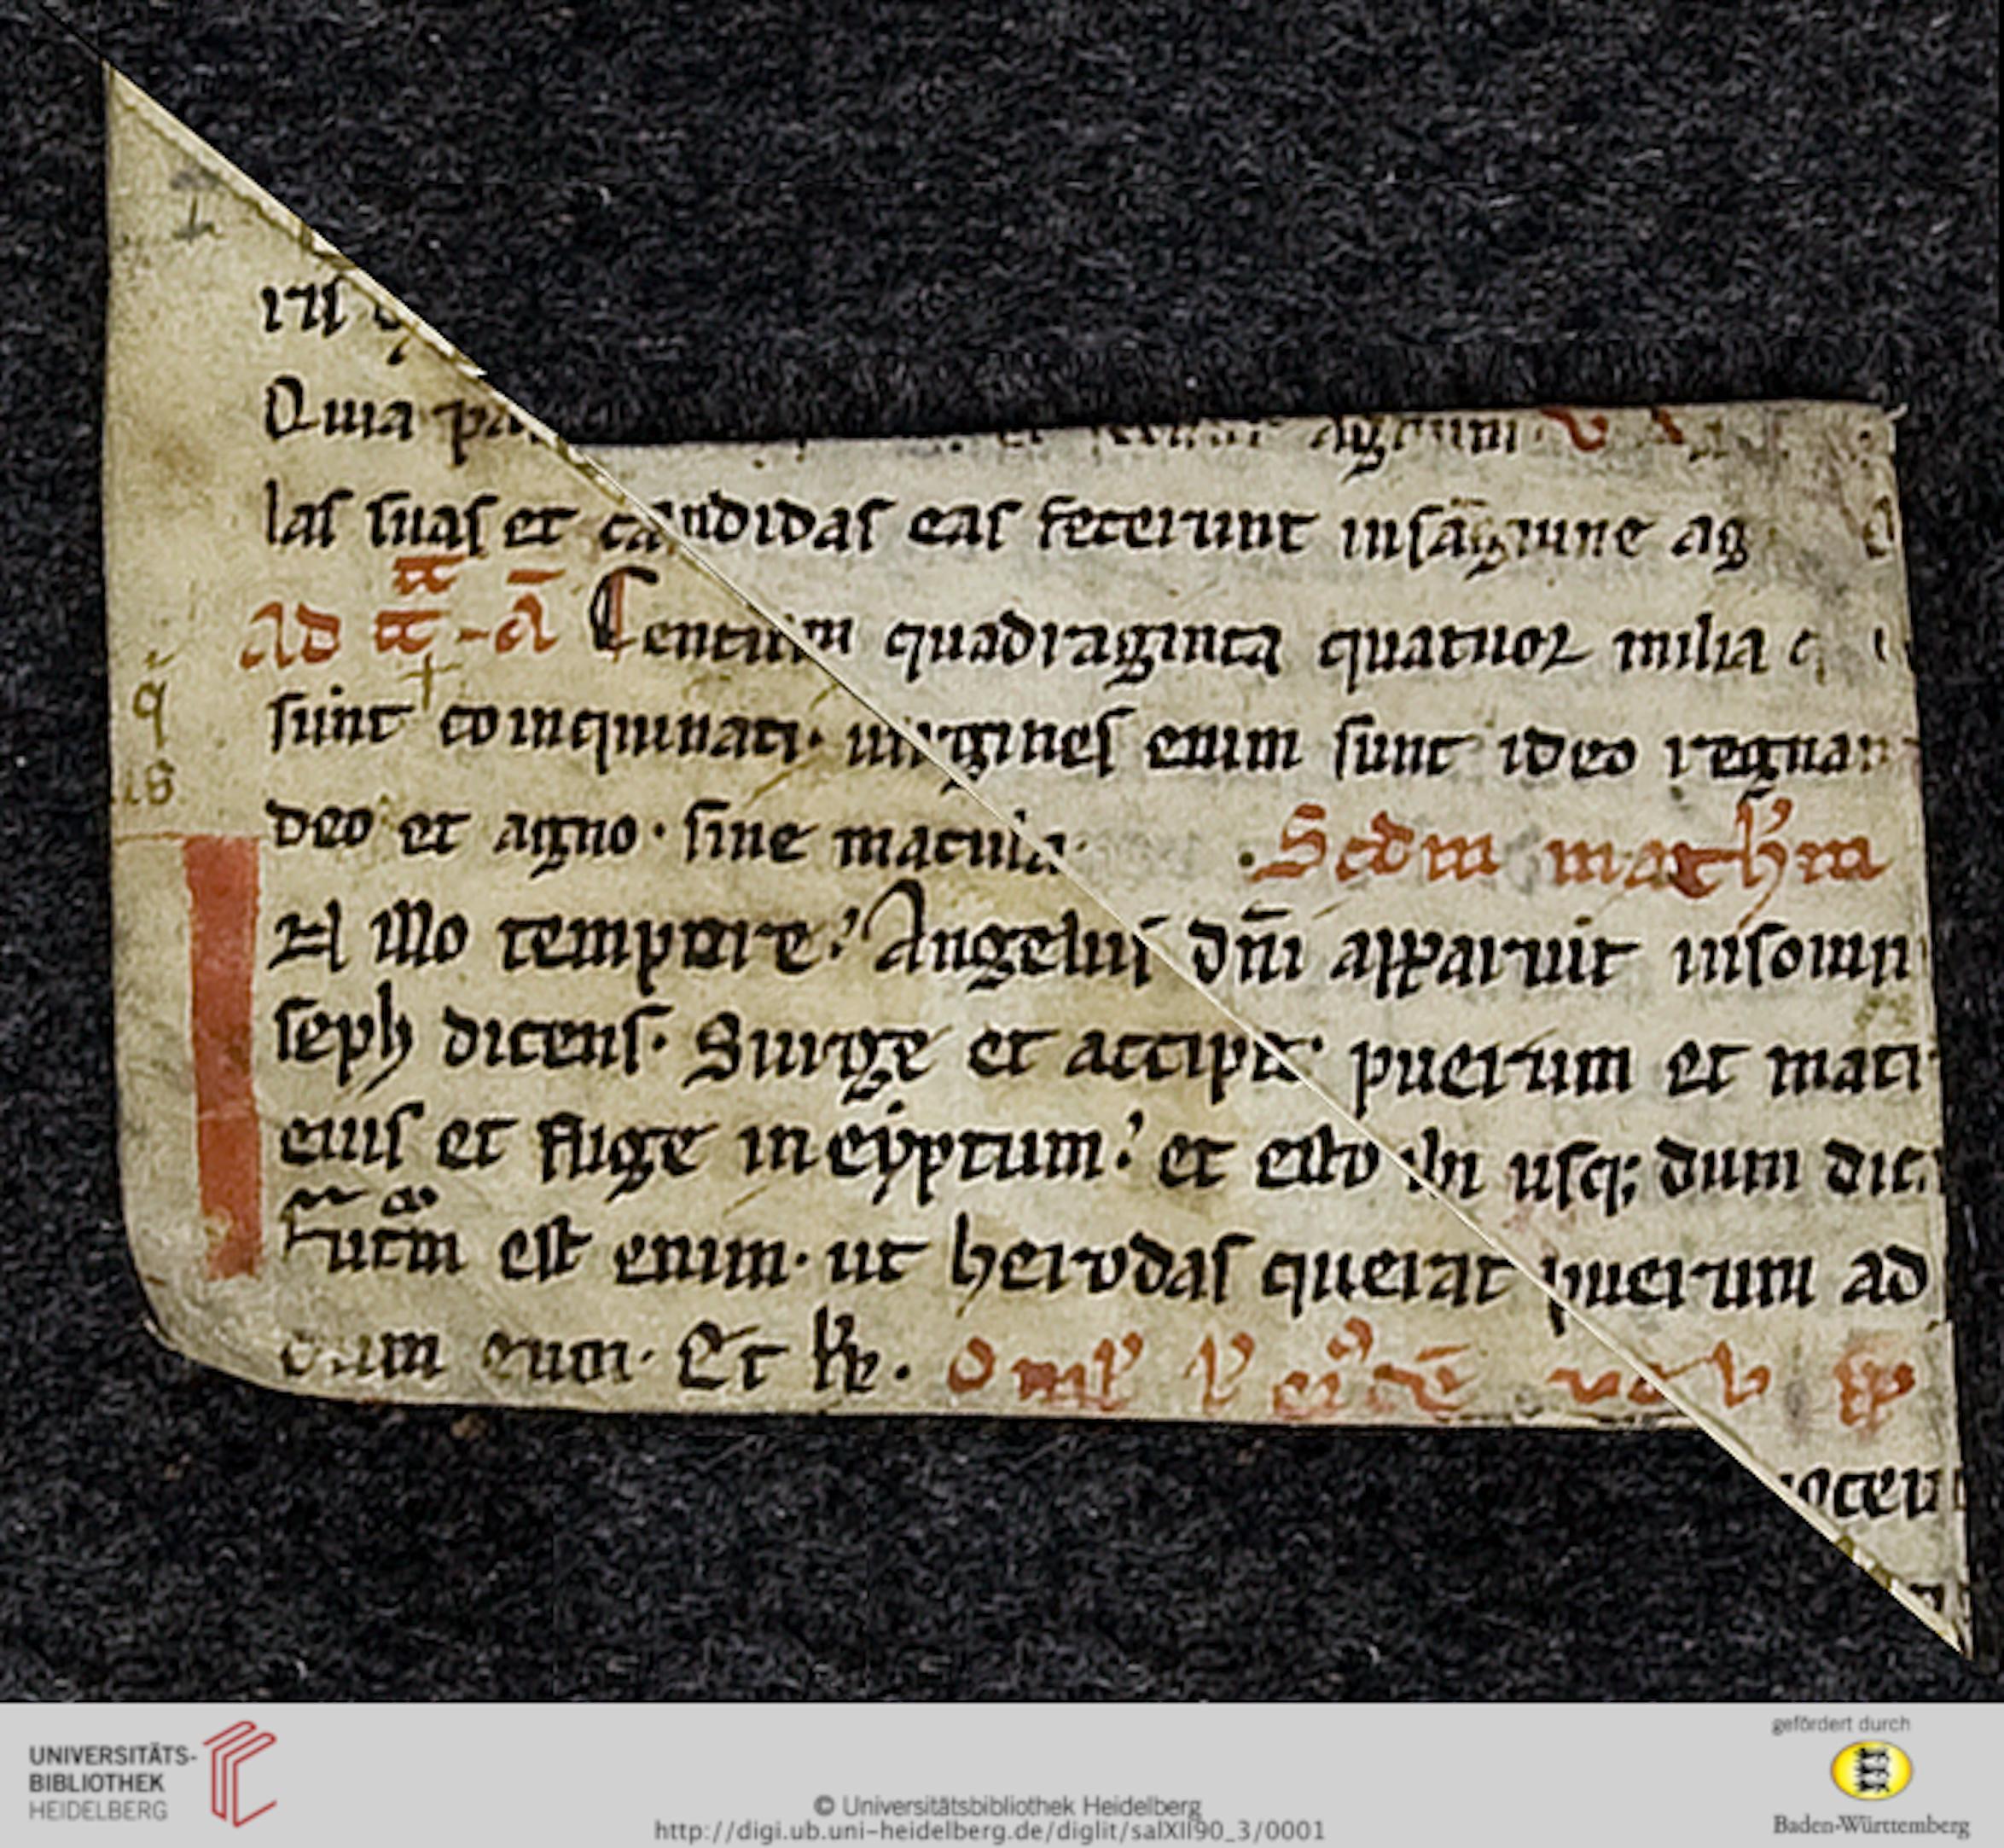 Quia
las suas et candidas eas fecerunt insāguine ag
Ad Centum quadraginta quatuor milia
sunt coinquinati· uirgines enim sunt ideo regnan
deo et agno· sine macula· Scdm math'm
N illo tempore: Angelus dn̄i apparuit insomn
seph dicens· Surge et accipe· puerum et matr
eius et fuge in eẏptum: et esto ibi usq; dum dic
est enim· ut herodas querat puerum ad
eum· Et
UNIVERSITÄTS-
BIBLIOTHEK
HEIDELBERG
© Universitätsbibliothek Heidelberg
http://digi.ub.uni-heidelberg.de/diglit/salXII90_3/0001
gefördert durch
Baden-Württemberg